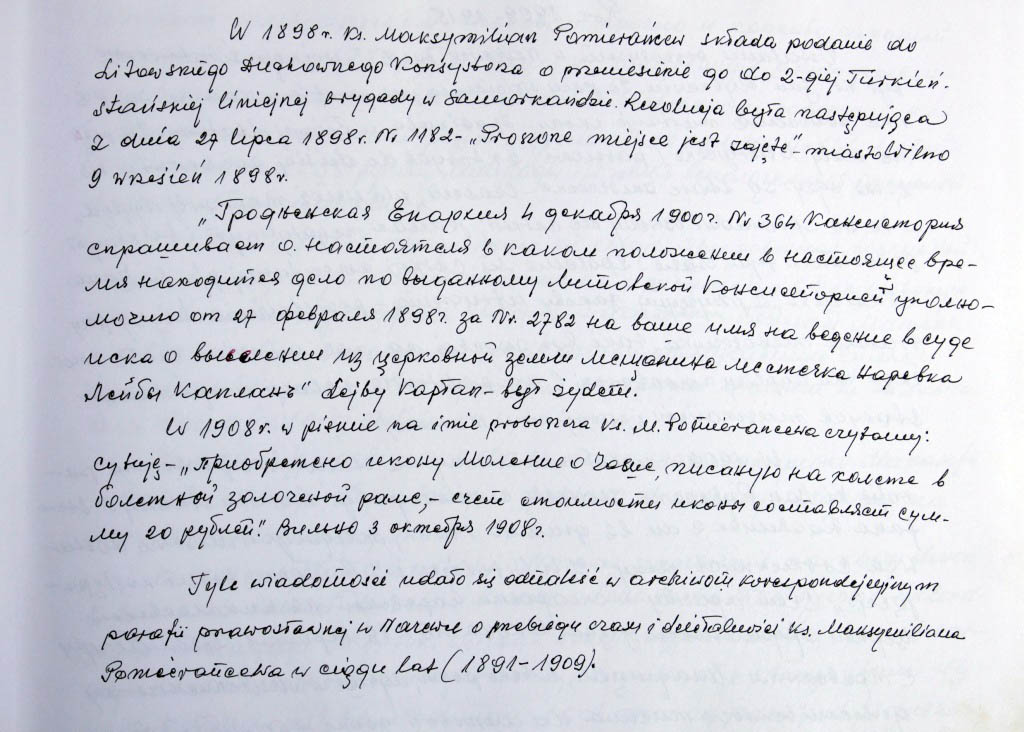 W 1898r. Ks. Maksymilian Pomierańcew składa podanie do
Litowskiego Duchownego Konsystora o przeniesienie go do 2-giej Turkień.
stańskiej liniejnej brygady w Samarkandzie. Rezolucja była następująca
z dnia 27 lipca 1898r. Nr 1182 - „Proszone miejsce jest zajęte" - miasto Wilno
9 wrzesień 1898r.
„Гродненская Епархия 4 декабря 1900г. Nr 364 Канситория
спрашивает о. настоятеля в каком положении в настоящее вре-
мя находится дело по выданному Литовской Консисторией уполно-
мочию от 27 февраля 1898г. за Nr. 2782 на ваше имя на ведение в суде
иска о выселении из церковной земли мещанина местечка Наревка
Лейбы Капланъ" Lejby Kapłan - był żydem.
W 1908r. w piśmie na imię proboszcza ks. M. Pomierancewa czytamy:
cytuję - „приобретено икону Моление о Чаше, писаную на холсте в
болетной золоченой раме, - счет стоимости иконы составляет сум-
му 20 рублей." Вильно 3 октября 1908г.
Tyle wiadomości udało się odnaleść w archiwum korespondejcyjnym
parafii prawosławnej w Narewce o przebiegu czasu i działalności ks. Maksymiliana
Pomierańcewa w ciągu lat (1891-1909).